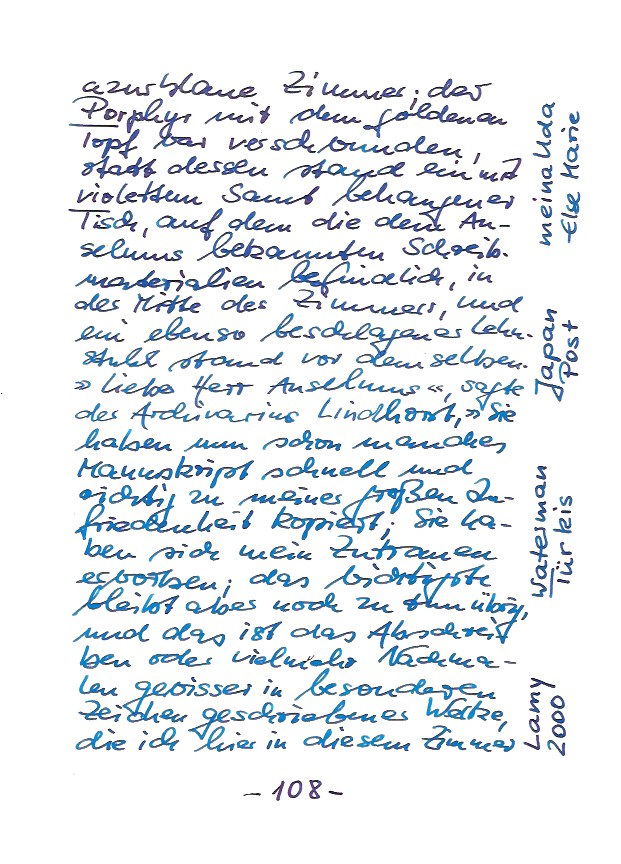 azurblaue Zimmer; der
Porphyr mit dem goldenen
Topf war verschwunden,
statt dessen stand ein mit
violettem Samt behangener
Tisch, auf dem die dem An-
selmus bekannten Schreib-
materialien befindlich, in
der Mitte des Zimmers, und
ein ebenso beschlagener Lehn-
stuhl stand vor demselben.
» Liebe Herr Anselmus «, sagte
der Archivarius Lindhorst, » Sie
haben nun schon manches
Manuskript schnell und
richtig zu meiner großen Zu-
friedenheit kopiert; Sie ha-
ben sich mein Zutrauen
erworben; das wichtigste
bleibt aber noch zu tun übrig,
und das ist das Abschrei-
ben oder vielmehr Nachma-
len gewisser in besonderen
Zeichen geschriebener Werke,
die ich hier in diesem Zimmer
- 108 -
meinaUda
Else Marie
Japan
Post
Waterman
Türkis
Lamy
2000